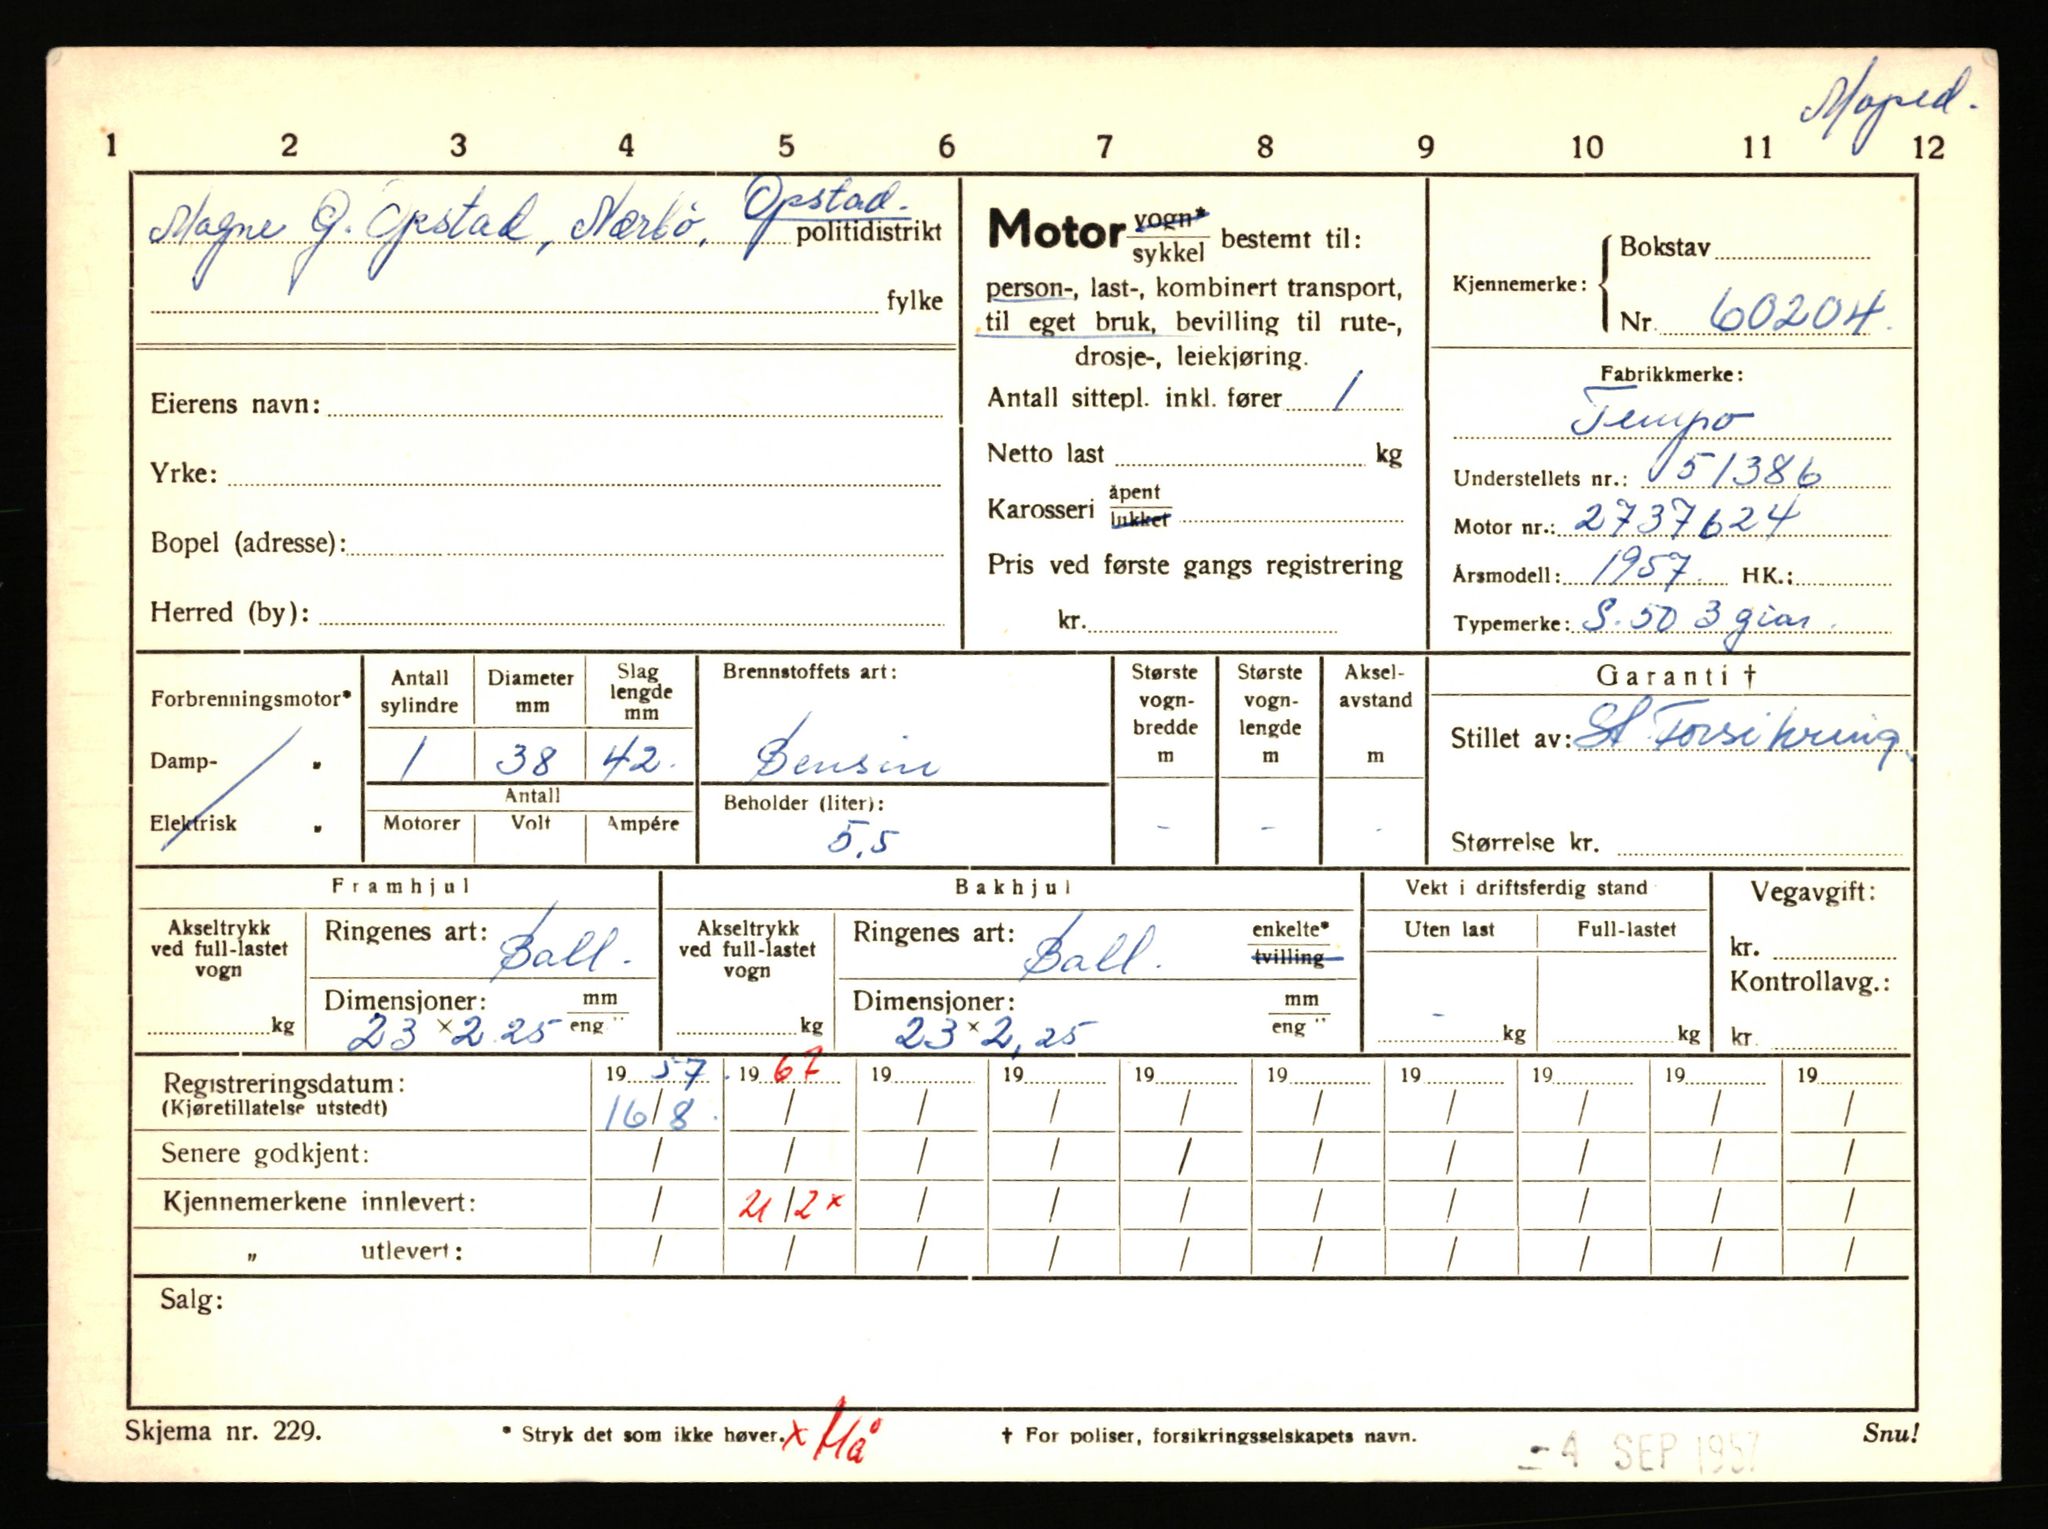 Moped.
1 2 3 4 5 6 7 8 9 10 11 12
Magne G. Opstad, Nærbö, Opstad. politidistrikt
fylke
Eierens navn:
Yrke:
Bopel (adresse):
Herred (by):
Motor vogn*/sykkel bestemt til:
person-, last-, kombinert transport,
til eget bruk, bevilling til rute-,
drosje-, leiekjøring.
Antall sittepl. inkl. fører 1
Netto last kg
Karosseri åpent/lukket
Pris ved første gangs registrering
kr.
Kjennemerke: Bokstav
Nr. 60204.
Fabrikkmerke:
Tempo
Understellets nr.: 51386
Motor nr.: 2737624
Årsmodell: 1957. HK.:
Typemerke: S. 50 3 giar.
Forbrenningsmotor*
Damp- "
Elektrisk "
Antall sylindre
1
Diameter mm
38
Slag lengde mm
42.
Antall
Motorer Volt Ampére
Brennstoffets art:
Bensin
Beholder (liter):
5,5
Største vogn-bredde m
-
Største vogn-lengde m
-
Aksel-avstand m
-
Garanti †
Stillet av: Forsikring.
Størrelse kr.
Framhjul
Akseltrykk ved full-lastet vogn
kg
Ringenes art: Ball.
Dimensjoner: mm/eng "
23 x 2.25
Bakhjul
Akseltrykk ved full-lastet vogn
kg
Ringenes art: Ball. enkelte*/tvilling
Dimensjoner: mm/eng "
23 x 2,25
Vekt i driftsferdig stand
Uten last Full-lastet
- kg kg
Vegavgift:
kr.
Kontrollavg.:
kr.
Registreringsdatum: 19 57. 19 67 19 19 19 19 19 19 19 19
(Kjøretillatelse utstedt) 16/8. / / / / / / / / /
Senere godkjent: / / / / / / / / / /
Kjennemerkene innlevert: / 21/2 x / / / / / / / /
" utlevert: / / / / / / / / / /
Salg:
Skjema nr. 229. * Stryk det som ikke høver. x Hå † For poliser, forsikringsselskapets navn. Snu!
-4 SEP 1957